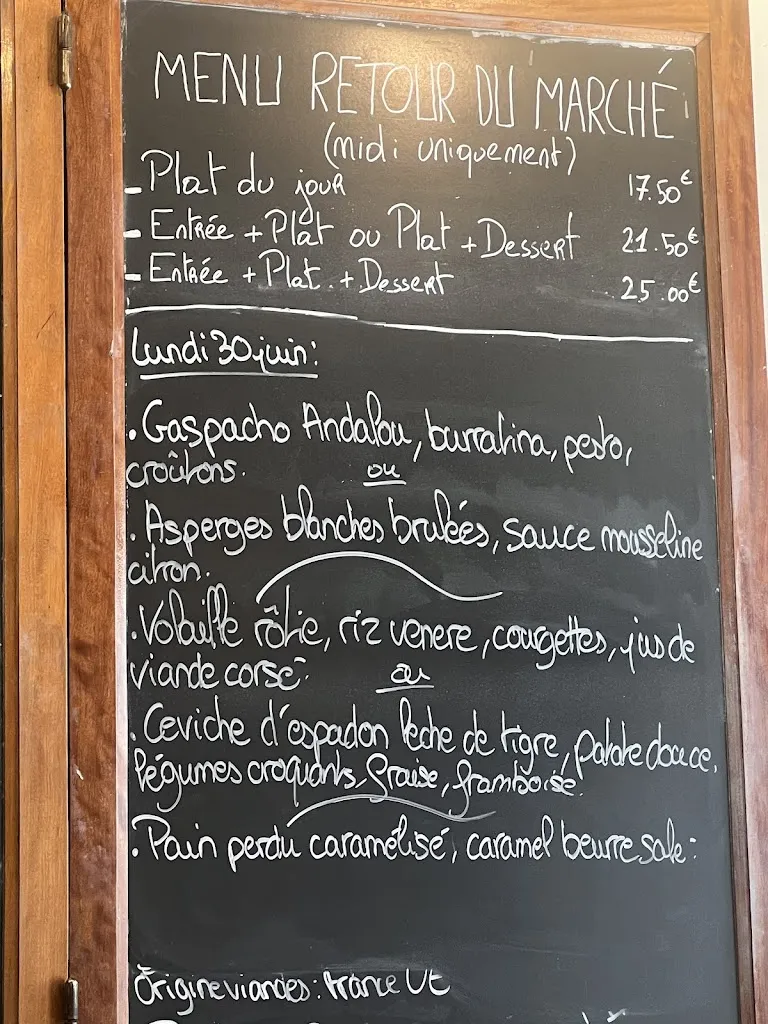 MENU RETOUR DU MARCHÉ
(midi uniquement)
- Plat du jour 17.50€
- Entrée + Plat ou Plat + Dessert 21.50€
- Entrée + Plat + Dessert 25.00€
Lundi 30 juin:
. Gaspacho Andalou, burratina, pesto,
croûtons.
ou
. Asperges blanches brulées, sauce mousseline
citron.
. Volaille rôtie, riz venere, courgettes, jus de
viande corsé.
ou
. Ceviche d'espadon leche de tigre, patate douce,
légumes croquants, fraise, framboise.
. Pain perdu caramélisé, caramel beurre salé.
Origine viandes: France UE